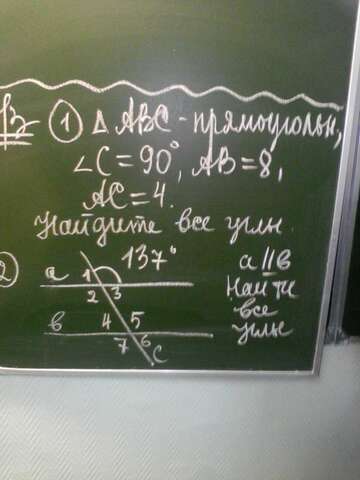 ДЗ ① Δ ABC - прямоугольн,
∠C = 90°, AB = 8,
AC = 4.
Найдите все углы.
2 137° a || b
a 1 Найти
2 3 все
b 4 5 углы
7 6
C